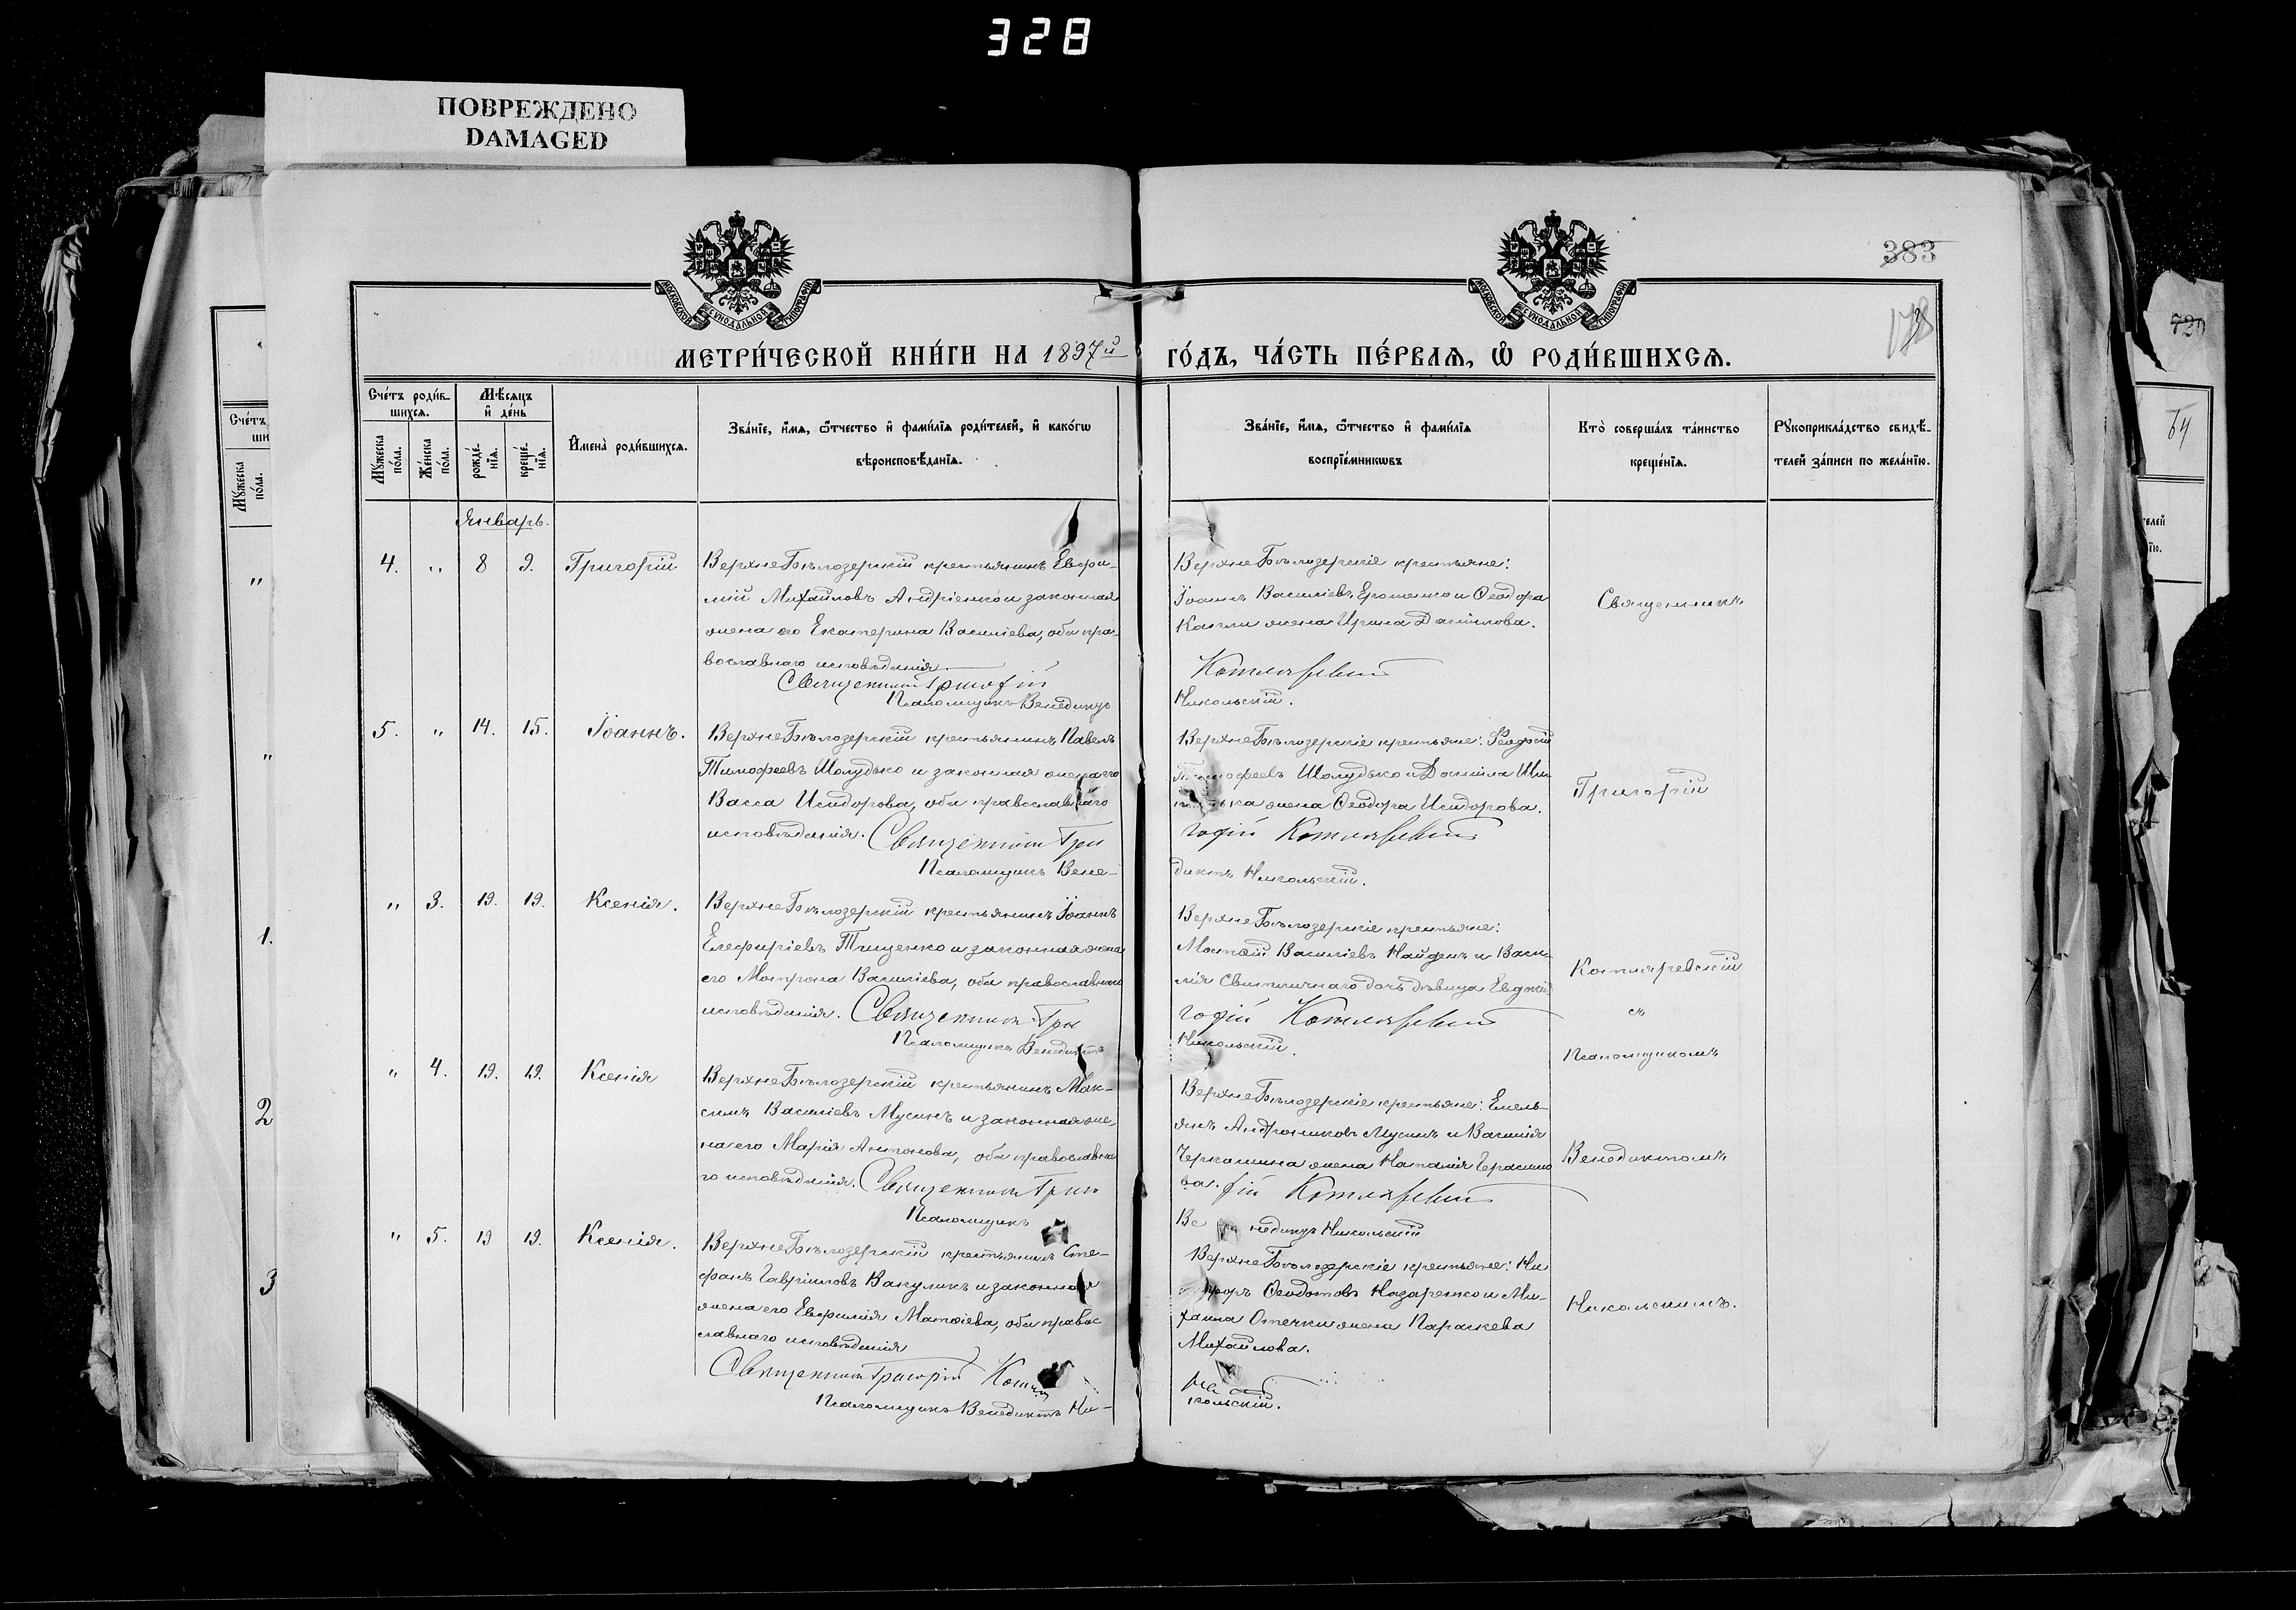 328
ПОВРЕЖДЕНО
DAMAGED
383
МЕТРИ́ЧЕСКОЙ КНИ́ГИ НА 1897й ГО́ДЪ, ЧА́СТЬ ПЕ́РВАѦ, Ѡ РОДИ́ВШИХСѦ.
МОСКОВСКОЙ СѴНОДАЛЬНОЙ ТИПОГРАФІИ
МОСКОВСКОЙ СѴНОДАЛЬНОЙ ТИПОГРАФІИ
Сче́тъ роди́вшихсѧ.
Мꙋ́жеска по́ла.
Же́нска по́ла.
Мѣ́сѧцъ и҆ де́нь
рожде́нїѧ.
креще́нїѧ.
И҆мена̀ роди́вшихсѧ.
Зва́нїе, и҆́мѧ, ѻ҆́тчество и҆ фами́лїѧ роди́телей, и҆ како́гѡ
вѣроисповѣ́данїѧ.
Зва́нїе, и҆́мѧ, ѻ҆́тчество и҆ фами́лїѧ
воспрїе́мникѡвъ
Кто̀ соверша́лъ та́инство
креще́нїѧ.
Рꙋкоприкла́дство свидѣ́телей за́писи по жела́нїю.
Январь.
4. " 8 9. Григорій
ВерхнеБѣлозерскій крестьянинъ Евфи-
мій Михайловъ Андріенко и законная
жена его Екатерина Василіева, оба пра-
вославнаго исповѣданія
Священникъ Григорій
Псаломщикъ Венедиктъ
ВерхнеБѣлозерскіе крестьяне:
Іоаннъ Василіевъ Ерошенко и Ѳеодора
Капли жена Ирина Даніилова.
Котляревскій
Никольскій.
Священникъ
5. " 14. 15. Іоаннъ.
ВерхнеБѣлозерскій крестьянинъ Павелъ
Тимофеевъ Шолудько и законная жена его
Васса Исидорова, оба православнаго
исповѣданія. Священникъ Гри
Псаломщикъ Вене-
ВерхнеБѣлозерскіе крестьяне:
Тимофеевъ Шолудько и Даніила
жена Ѳеодора Исидорова.
горій Котляревскій
диктъ Никольскій.
Григорій
" 3. 19. 19. Ксенія.
ВерхнеБѣлозерскій крестьянинъ Іоаннъ
Елефиріевъ Тищенко и законная жена
его Матрона Василіева, оба православнаго
исповѣданія. Священникъ Гри
Псаломщикъ Венедиктъ
ВерхнеБѣлозерскіе крестьяне:
Матѳій Василіевъ Найденъ и Васи-
лія Свитличнаго дочь дѣвица Евдокія
горій Котляревскій
Никольскій.
Котляревскій
съ
Псаломщикомъ
" 4. 19. 19. Ксенія
ВерхнеБѣлозерскій крестьянинъ Мак-
симъ Василіевъ Мусинъ и законная же-
на его Марія Антонова, оба православна
го исповѣданія. Священникъ Григо
Псаломщикъ
ВерхнеБѣлозерскіе крестьяне: Емель-
янъ Андрониковъ Мусинъ и Василія
Черкашина жена Наталія Герасимо
ва. рій Котляревскій
Ве недиктъ Никольскій
Венедиктомъ
" 5. 19 19. Ксенія.
ВерхнеБѣлозерскій крестьянинъ Сте-
фанъ Гавріиловъ Вакуликъ и законная
жена его Евфимія Матѳіева, оба право
славнаго исповѣданія
Священникъ Григорій Котл
Псаломщикъ Венедиктъ Ни-
ВерхнеБѣлозерскіе крестьяне: Ни
форъ Ѳеодотовъ Назаренко и Ми-
хаила Отечки жена Параскева
Михайлова.
кольскій.
Никольскимъ.
Сче́тъ
ши
Мꙋ́жеска по́ла.
"
"
1.
2
3
720
64
телей
їю.